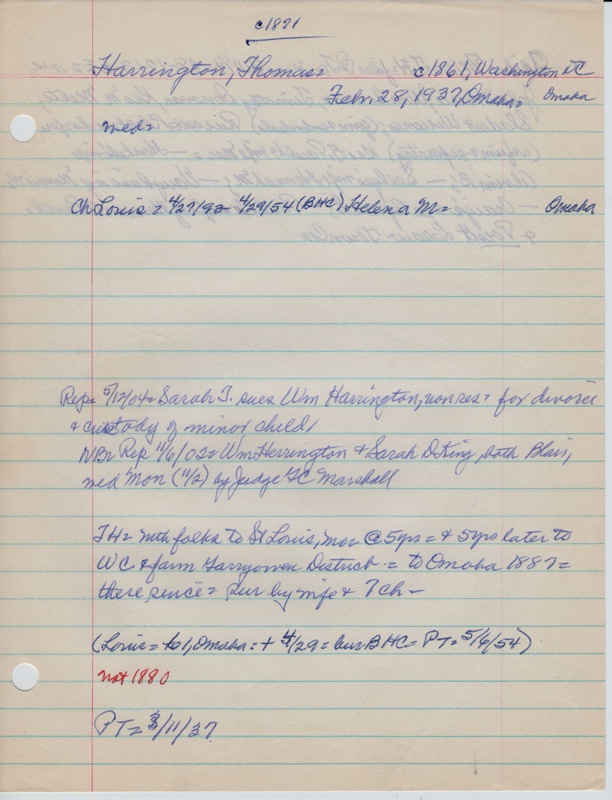 c1871
Harrington, Thomas= c1861, Washington DC
Feb. 28, 1937, Omaha= Omaha
med=
Ch Louis = 4/27/92 - 4/29/54 (BHC) Helena M= Omaha
Rep= 5/12/04= Sarah J. sues Wm Harrington, nonres= for divorce
& custody of minor child/
NBr Rep 11/6/02= Wm Herrington & Sarah D King, both Blair,
med Mon (11/2) by Judge Marshall
TH= with folks to St Louis, mo= @ 5yrs= & 5yrs later to
WC & farm Garryowen District = to Omaha 1887=
there since= sur by wife & 7 ch -
(Louis= to 1, Omaha= + 4/29= bur BHC= PT= 5/6/54)
not 1880
PT= 3/11/37